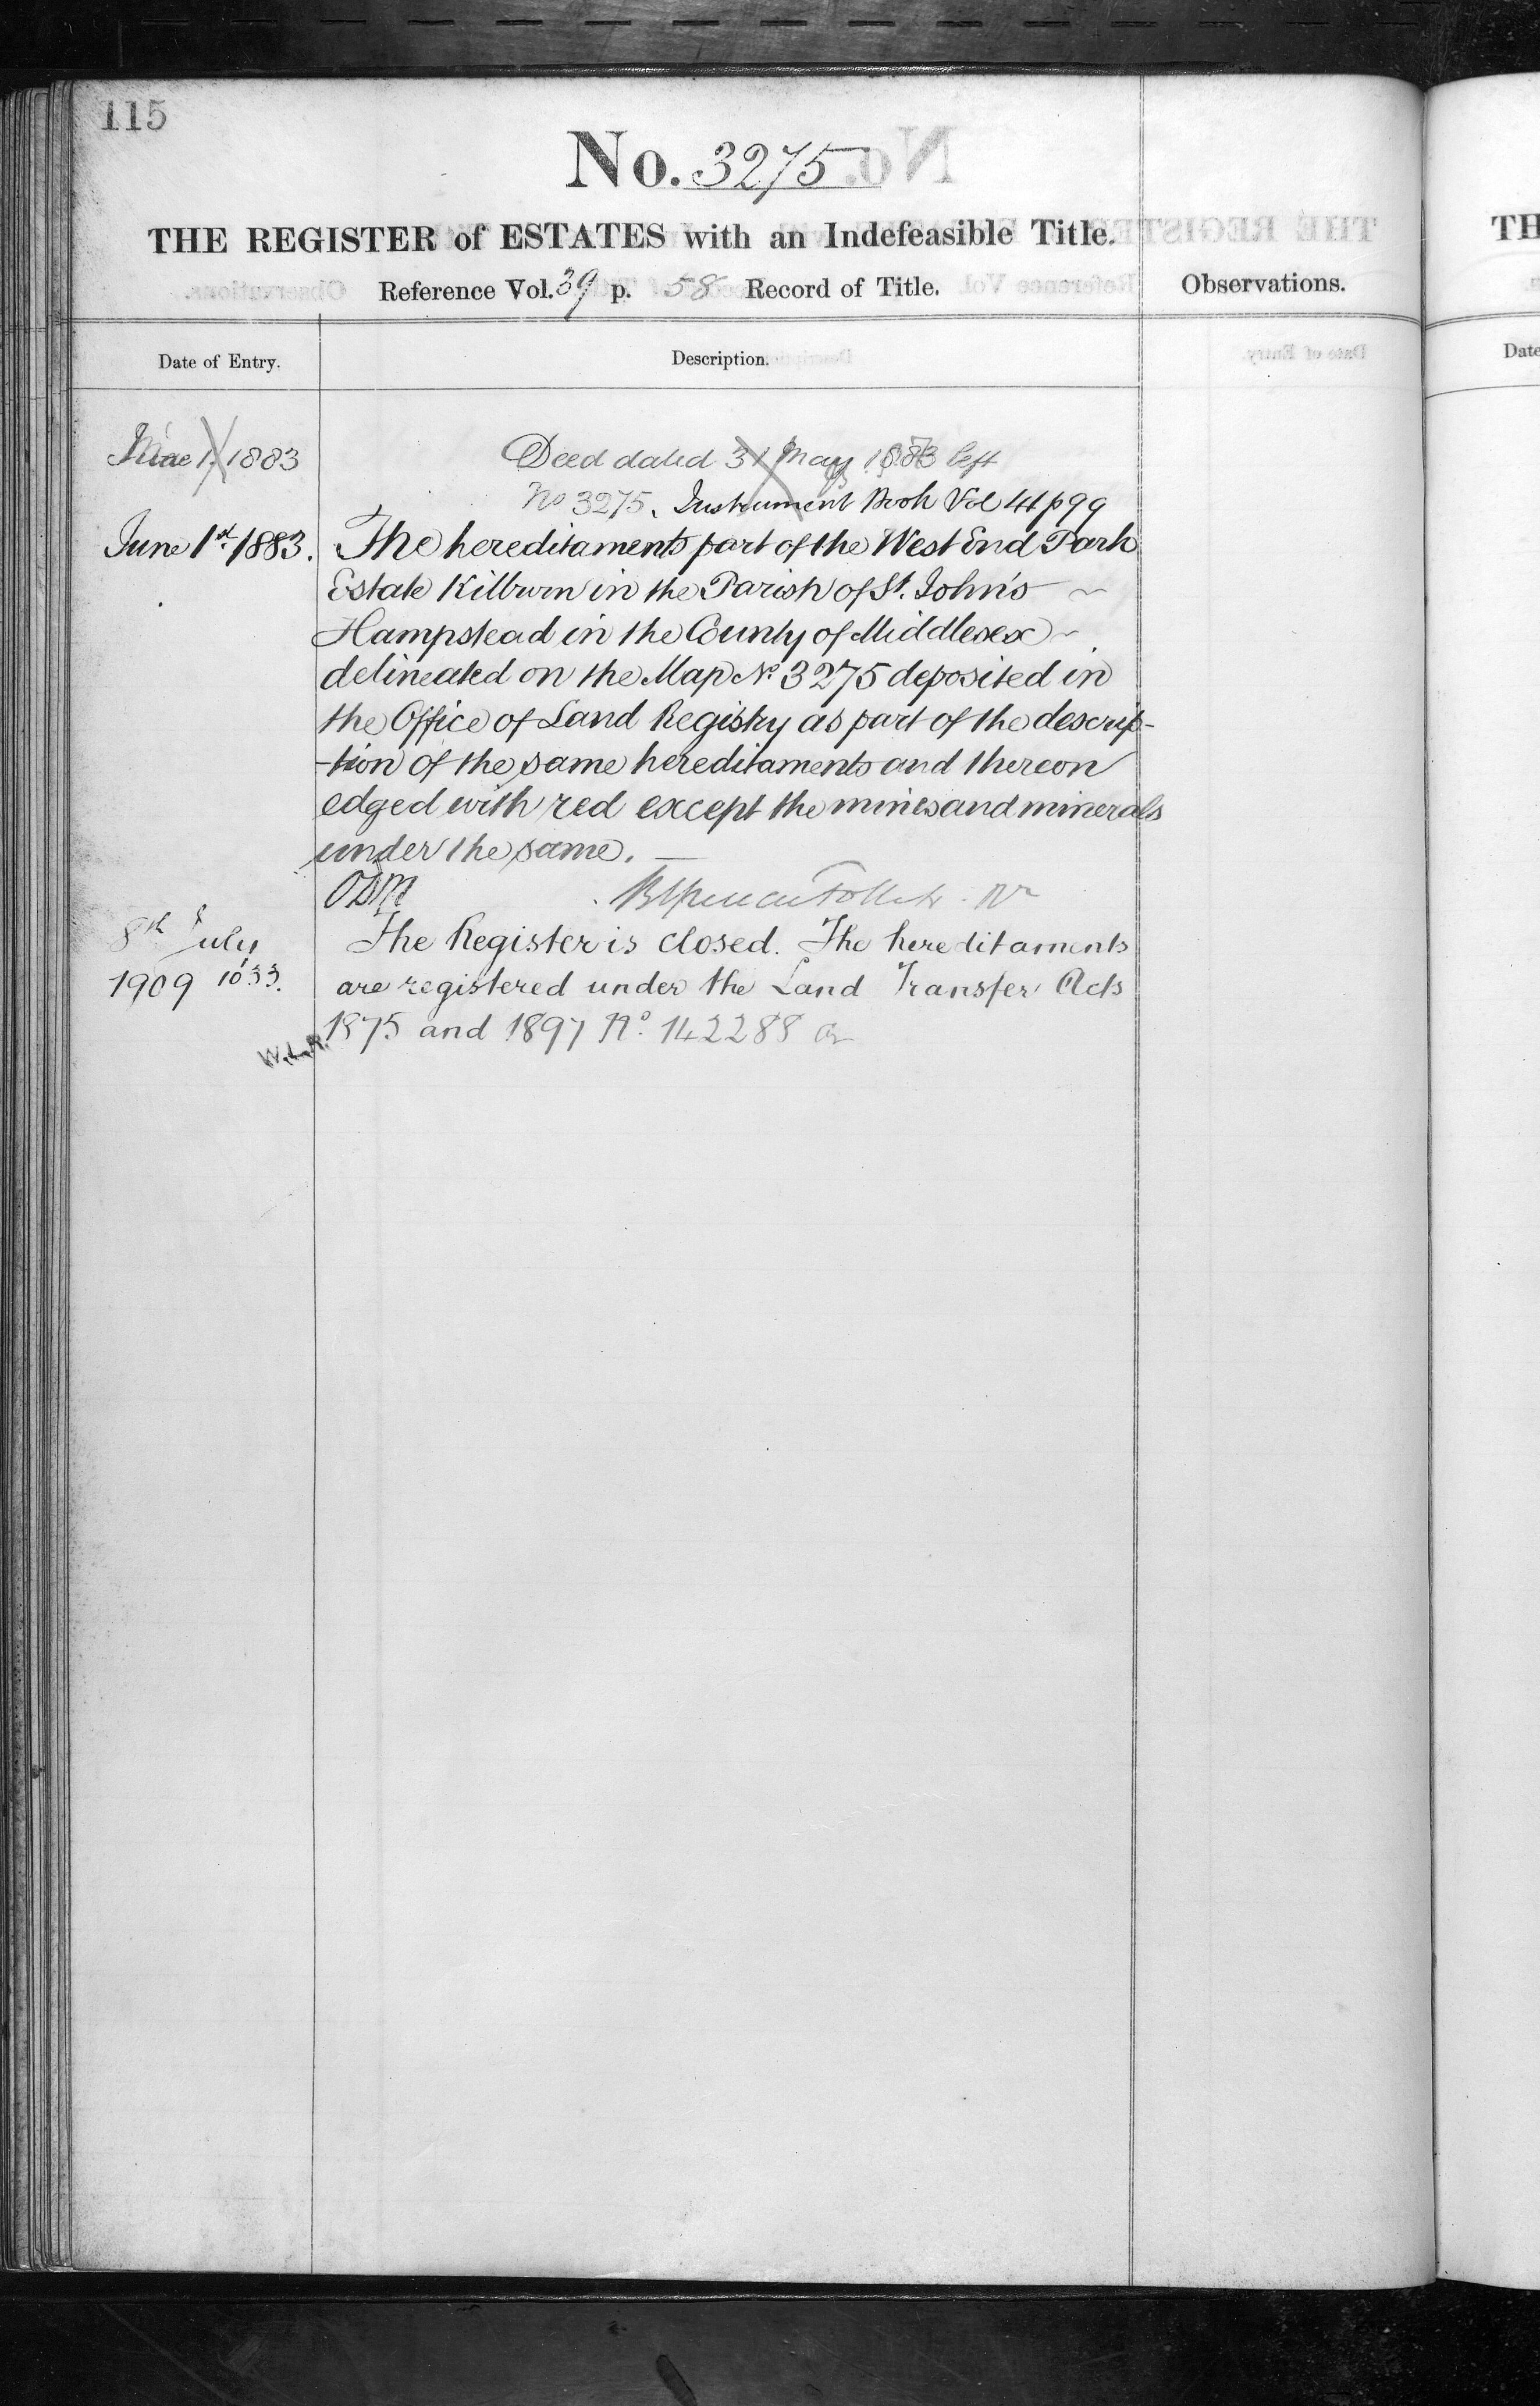 115
No. 3275
THE REGISTER of ESTATES with an Indefeasible Title.
Reference Vol. 39 p. 58 Record of Title.
Observations.
Date of Entry.
Description.
June 1 1883
Deed dated 31 May 1883 left
No 3275. Instrument Book Vol 41 p 99
June 1st 1883. The hereditaments part of the West End Park
Estate Kilburn in the Parish of St. John's ~
Hampstead in the County of Middlesex ~
delineated on the Map No 3275 deposited in
the Office of Land Registry as part of the descrip-
-tion of the same hereditaments and thereon
edged with red except the mines and minerals
under the same. —
8th July
1909 10.33.
The Register is closed. The hereditaments
are registered under the Land Transfer Acts
1875 and 1897 No. 142288
W.L.R.
TH
Date